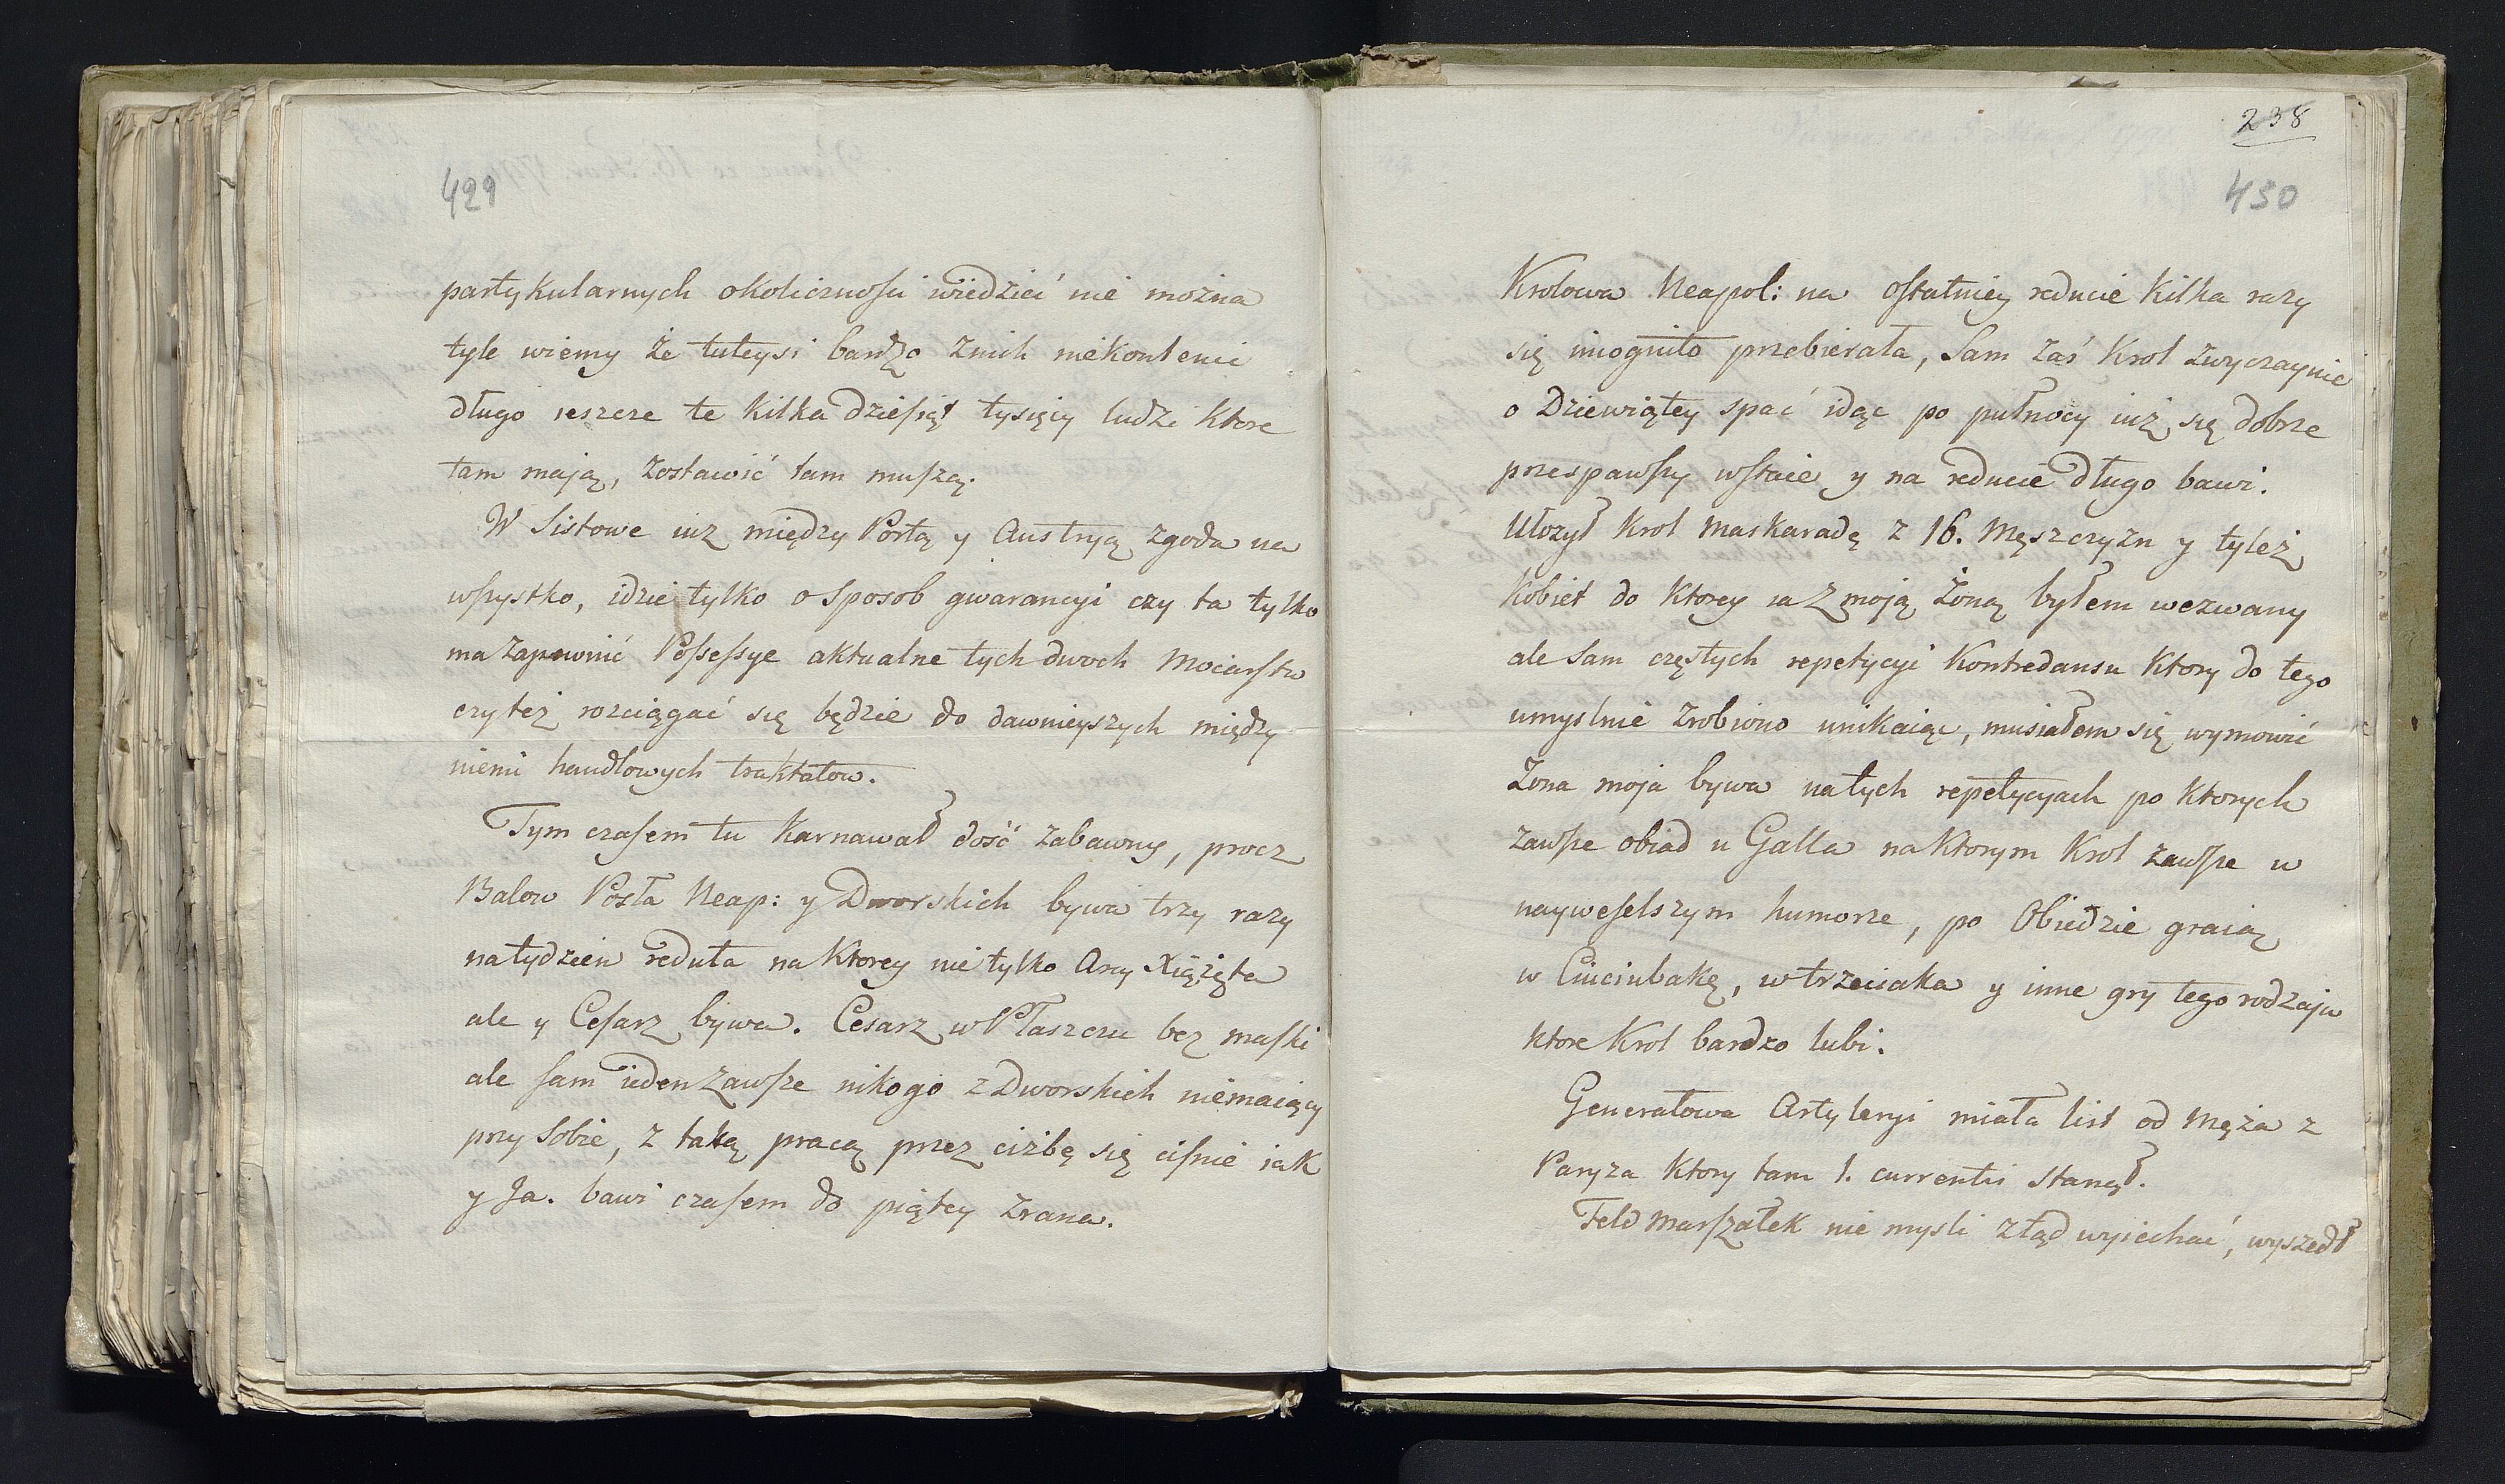 429
partykularnych okolicznosci wiedzieć nie można
tyle wiemy że tuteysi bardzo znich niekontenci
długo ieszcze te kilkadziesiąt tysięcy ludzi ktore
tam mają, zostawić tam muszą.
W Sistowe iuz między Portą y Austryą zgoda na
wszystko, idzie tylko o sposob gwarancyi czy ta tylko
ma zapewnić Possessye aktualne tych dwoch Mocarstw
czy też rozciągać się będzie do dawnieyszych między
niemi handlowych traktatow.
Tym czasem tu karnawał dość zabawny, procz
Balow Posła Neap: y Dworskich bywa trzy razy
na tydzien reduta na ktorey nie tylko Arcy Xiążęta
ale y Cesarz bywa. Cesarz w Płaszczu bez maski
ale sam ieden zawsze nikogo z Dworskich niemaiący
przy sobie, z taką pracą przez ciżbę się ciśnie iak
y Ja. bawi czasem do piątey zrana.
238
430
Krolowa Neapol: na ostatniey reducie kilka razy
się incognito przebierała, Sam zaś Krol zwyczaynie
o Dziewiątey spać idąc po pułnocy iuż się dobrze
przespawszy wstaie y na reducie długo bawi.
Ułożył Krol Maskaradę z 16. Męszczyzn y tyleż
kobiet do ktorey ia z moją Żoną byłem wezwany
ale Sam częstych repetycyi kontredansu ktory do tego
umyslnie zrobiono unikaiąc, musiałem się wymowić
Żona moja bywa na tych repetycyach po ktorych
zawsze obiad u Galla na ktorym Krol zawsze w
nayweselszym humorze, po Obiedzie graią
w Ciuciubakę, w trzeciaka y inne gry tego rodzaju
ktore Krol bardzo lubi.
Generałowa Artyleryi miała list od Męża z
Paryza ktory tam 1. currentis stanął.
Feld Marszałek nie mysli ztąd wyiechać, wyszedł